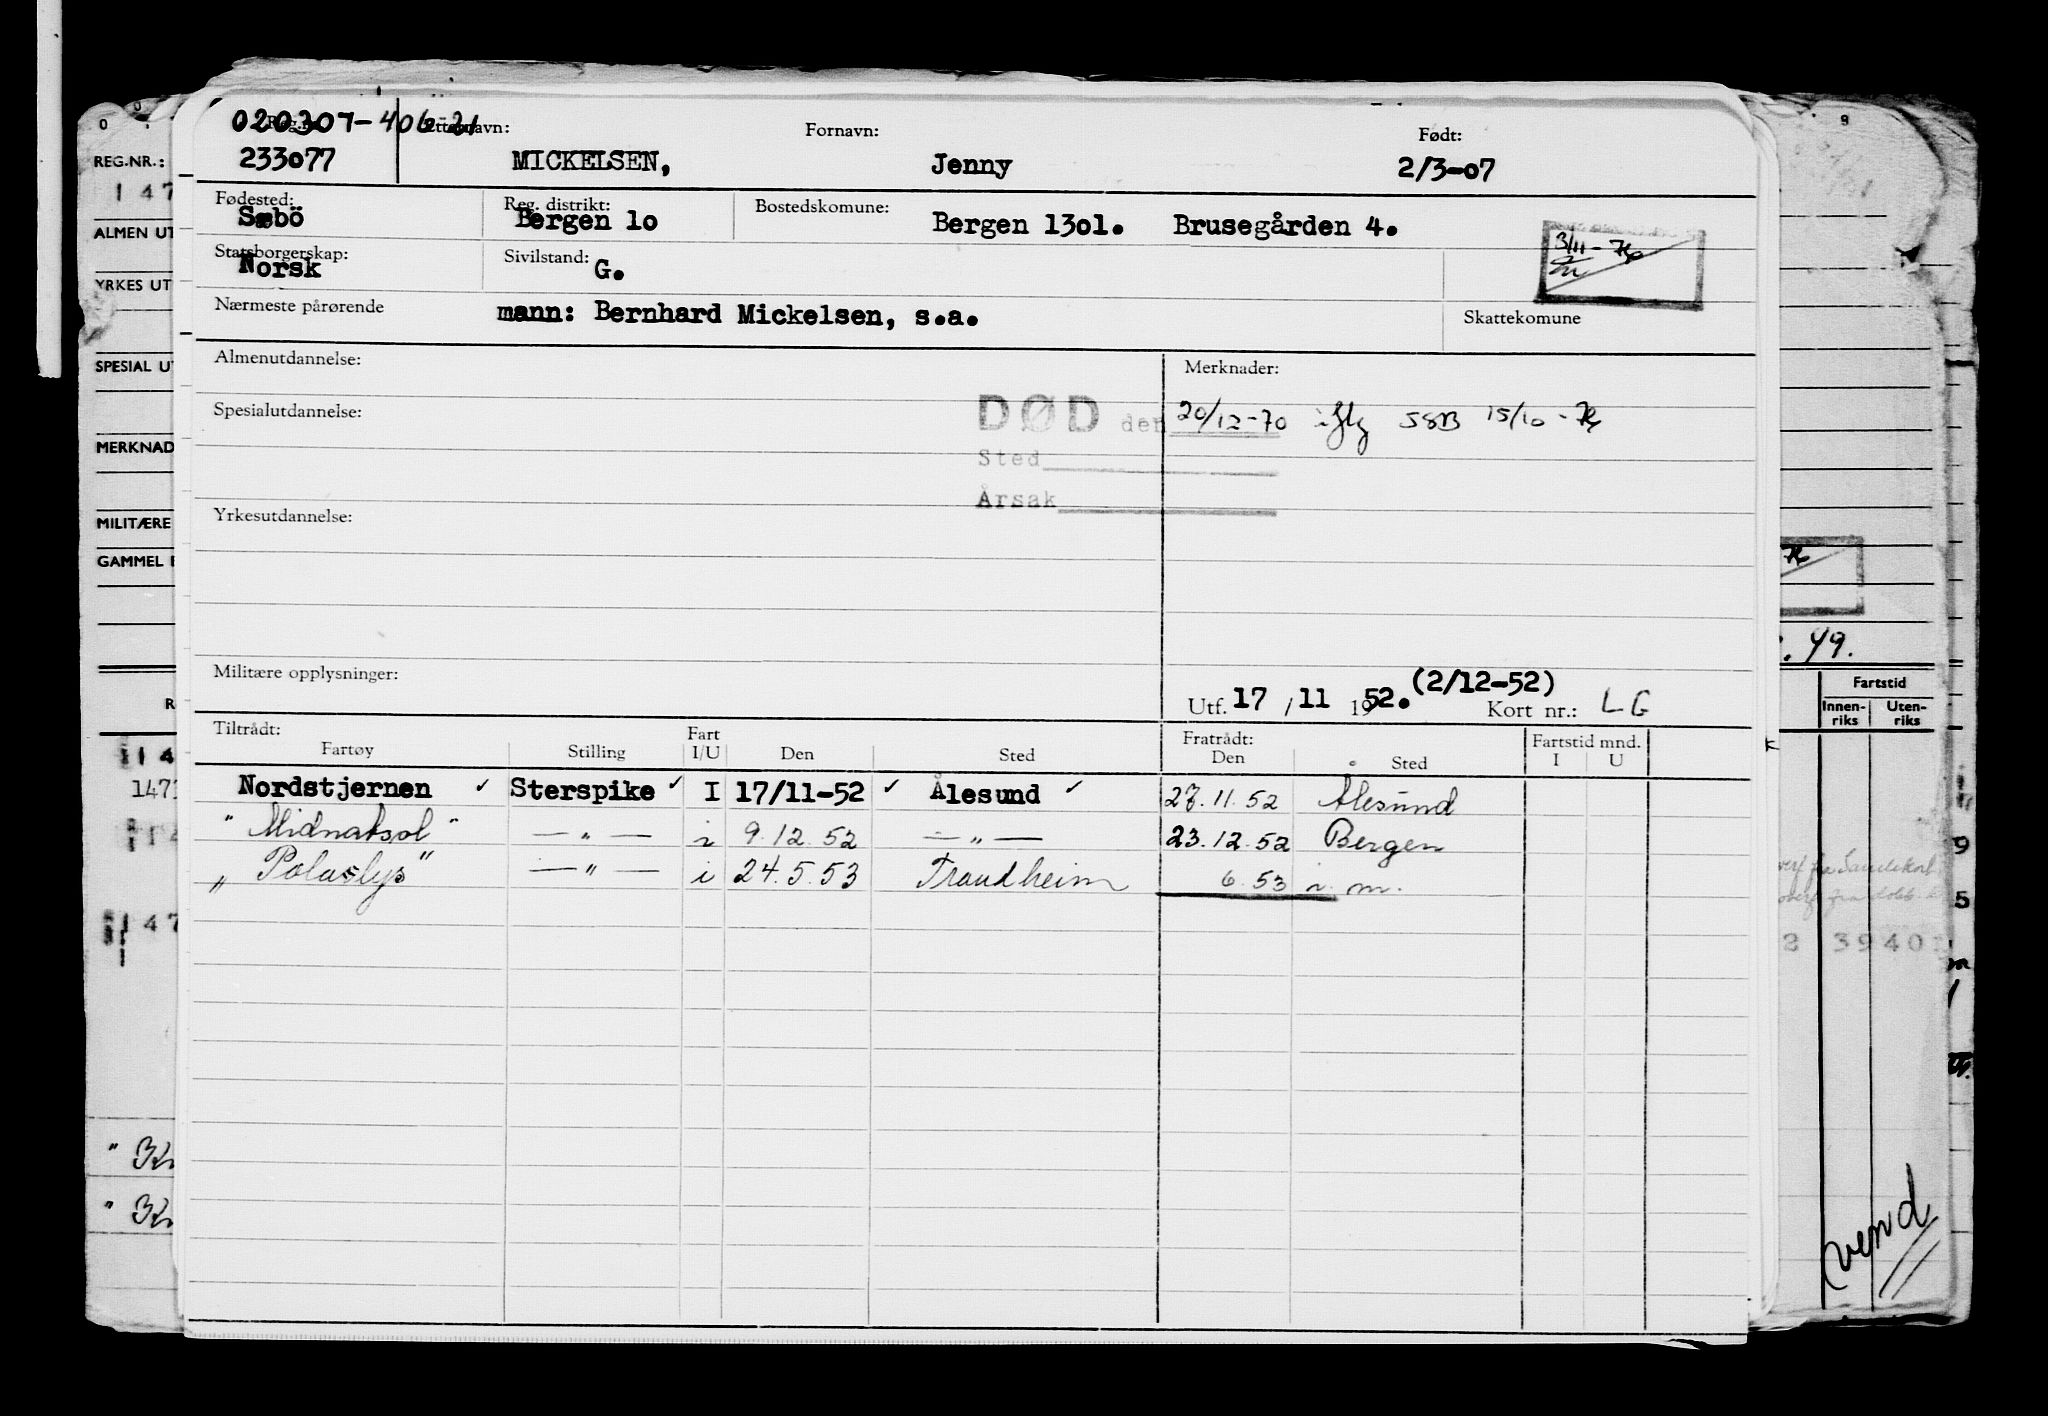 020307-406-21
Reg.nr. Etternavn: Fornavn: Født:
233077 MICKELSEN, Jenny 2/3-07
Fødested: Reg. distrikt: Bostedskomune:
Sæbö Bergen 10 Bergen 1301. Brusegården 4.
Statsborgerskap: Sivilstand:
Norsk G.
3/11-
Nærmeste pårørende mann: Bernhard Mickelsen, s.a. Skattekomune
Almenutdannelse: Merknader:
Spesialutdannelse: DØD den 20/12-70 iflg SSB 15/10-
Sted
Årsak
Yrkesutdannelse:
Militære opplysninger:
Utf. 17/11 1952. (2/12-52) Kort nr.: LG
Tiltrådt: Fratrådt: Fartstid mnd.
Fartøy Stilling Fart I/U Den Sted Den Sted I U
Nordstjernen ✓ Sterspike ✓ I 17/11-52 ✓ Ålesund ✓ 27.11.52 Ålesund
"Midnatsol" — " — i 9.12.52 — " — 23.12.52 Bergen
"Polarlys" — " — i 24.5.53 Trondheim 6.53 i. m.
REG.NR.:
147
ALMEN UT
YRKES UT
SPESIAL UT
MERKNAD
MILITÆRE
GAMMEL
. 49.
Fartstid
Innen-riks Uten-riks
1471
147
9
5
2 3940
vend